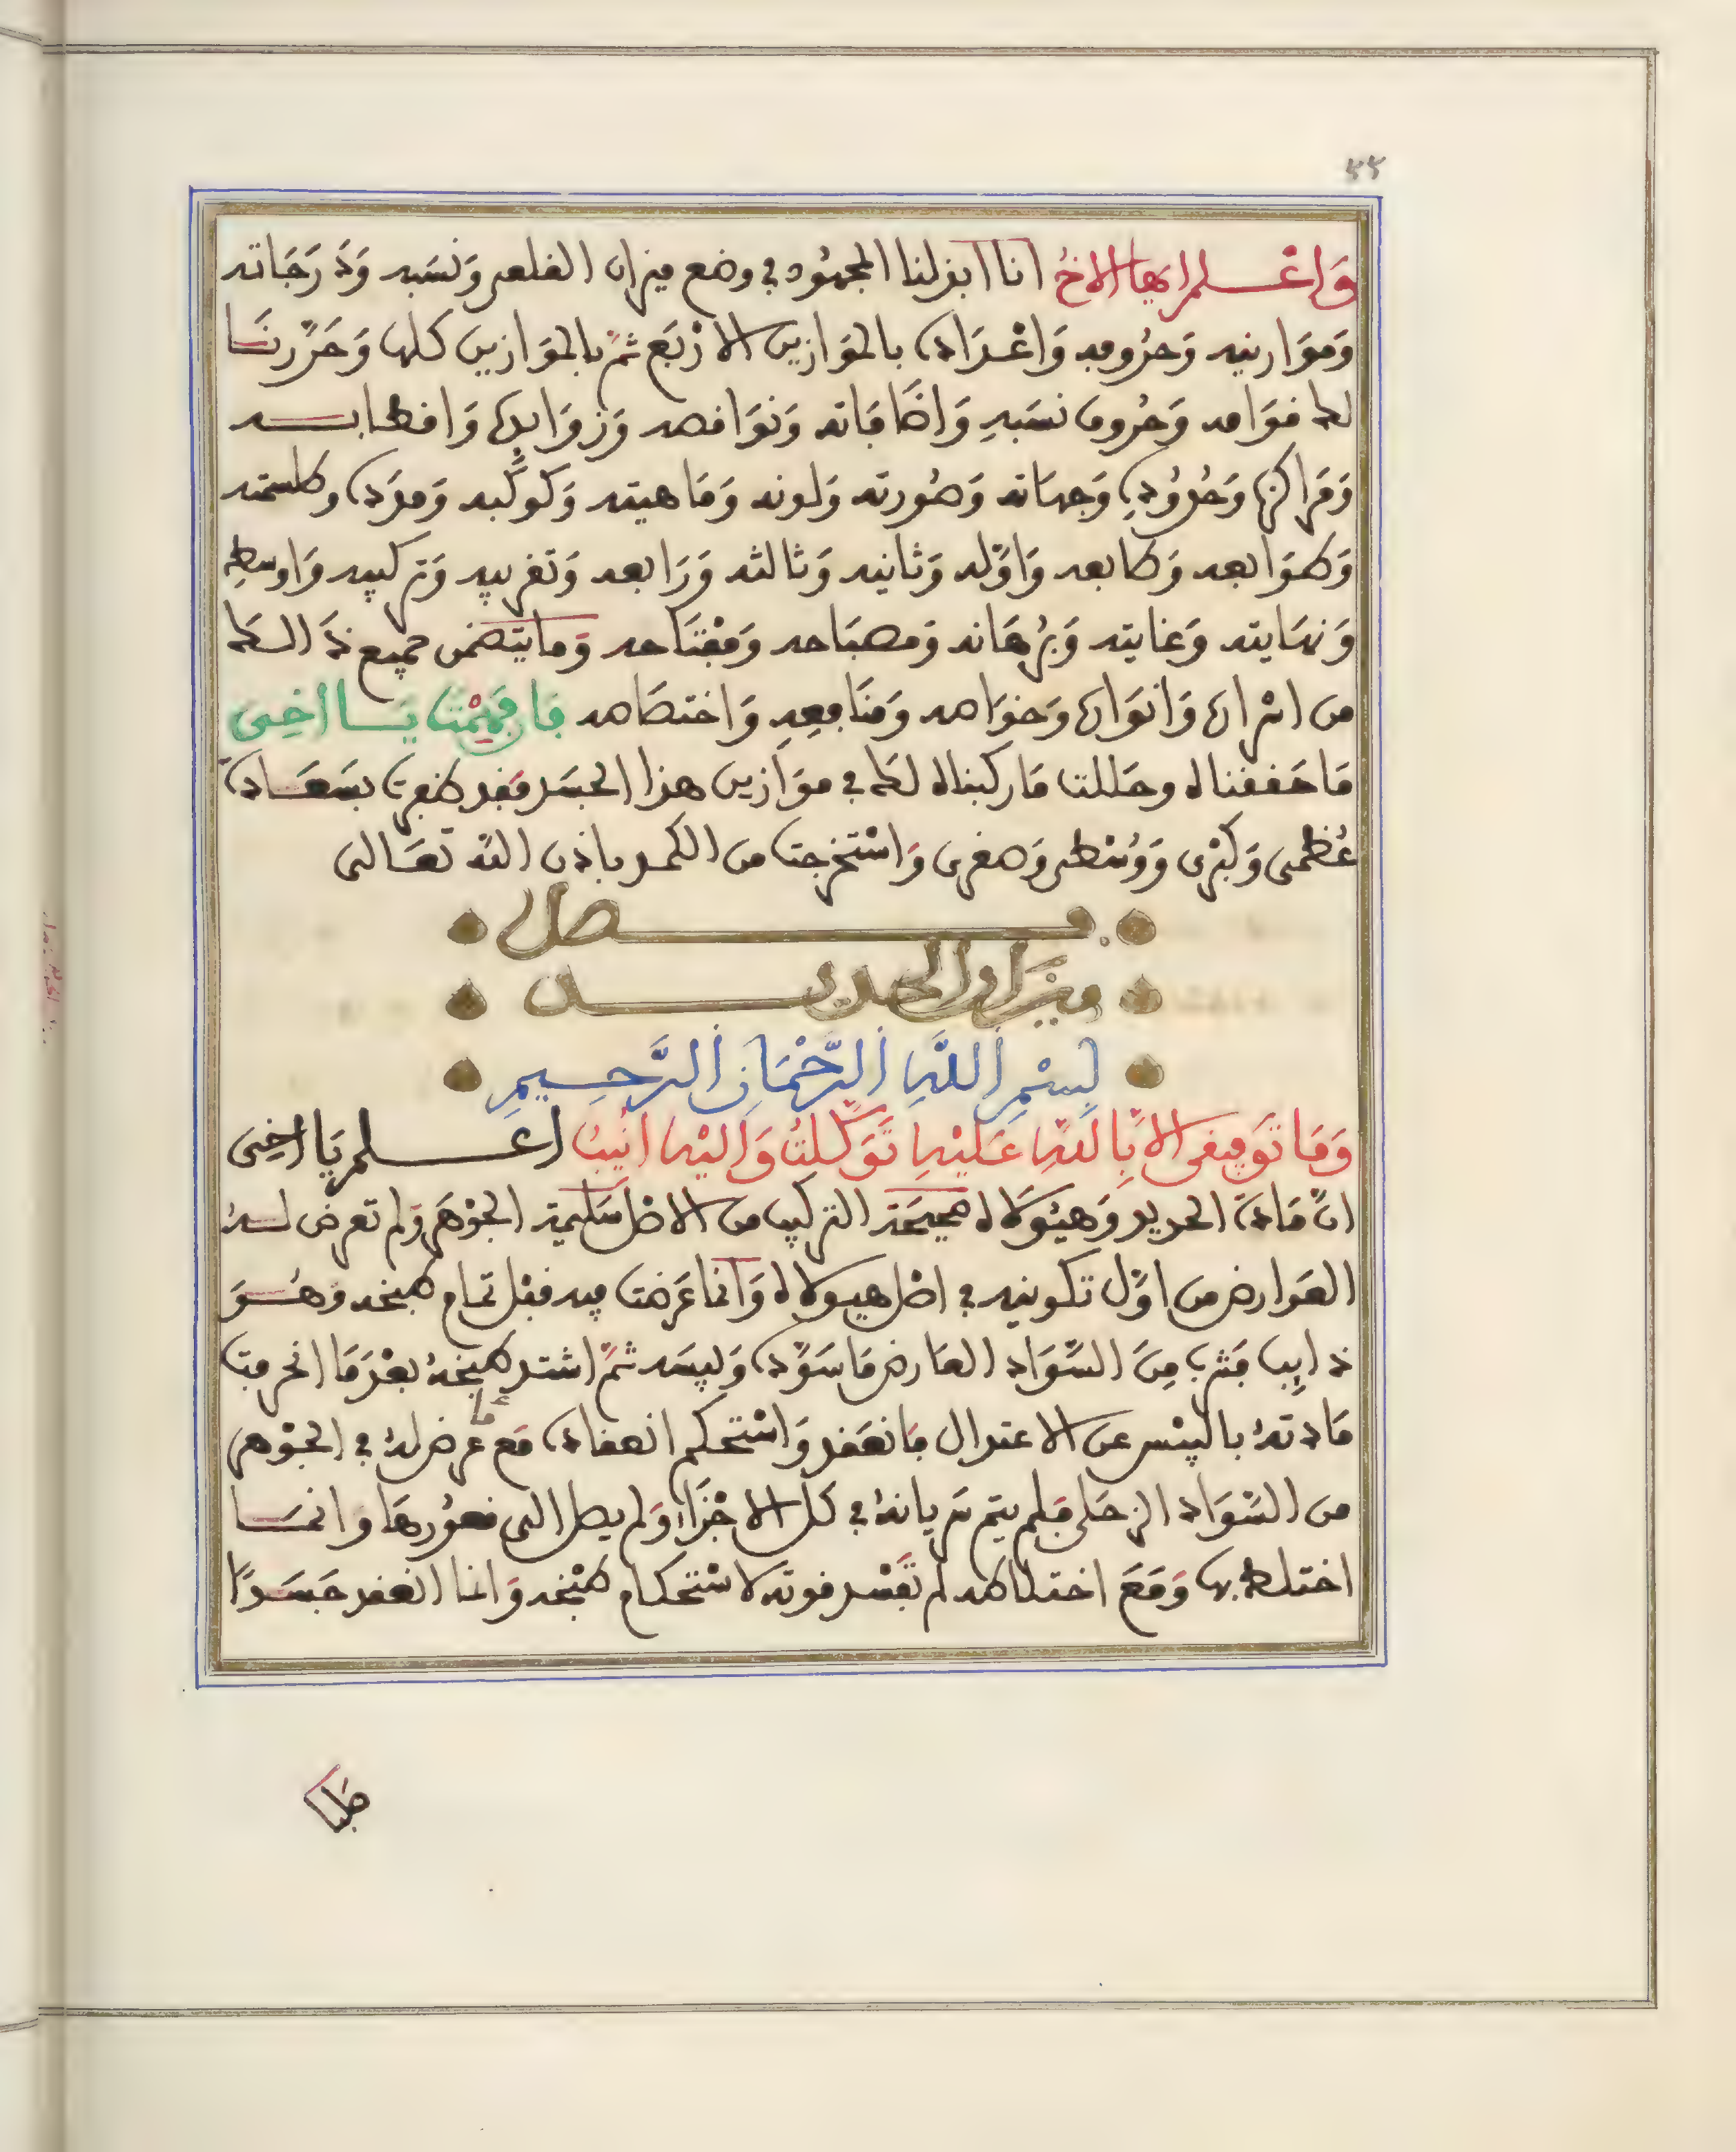 ٥٥
وَاعْلم ايها الاخُ اننا ابذلنا المجهُود في وضع ميزان القلعى وَنسَبه وَدَرَجَاته
وَموَازينه وَحرُوفه وَاعْدَاده بالموَازين الارْبَع ثمّ بالموَازين كلها وَحَرّرنَا
لك قوَامه وَحُروف نسَبهِ وَاضَافَاته وَنوَاقصه وَزوَايدِه وَاقطابه
وَمَراكزه وَحُدُودهِ وَجهاته وَصُورته وَلونه وَمَاهيته وَكوكبه وَمدَده وطلسمته
وَطوَابعه وَطابعه وَاوّله وَثانيه وَثالثه وَرَابعه وَتقريبه وَتركيبه وَاوسطه
وَنهَايته وَغايته وَبرُهَانه وَمصبَاحه وَمفْتَاحه وَمايتَضمن جميع ذَالك
من اسراره وَانوَاره وَخوَاصه وَمنَافعهِ وَاختصَاصه فَان فَهِمْتَ يَا اخِى
مَا حَققناه وحَللت مَا ركبناه لك في موَازين هذا الجسَد فقد ظفرت بسَعَادة
عُظمى وَكبْرى وَوُسْطى وَصغرى وَاسْتخرجت من الكمد باذن الله تعَالى
فصل
ميزان الحديد
بِسْمِ اللَّهِ الرَّحْمَانِ الرَّحِيمِ
وَمَا تَوفِيقى الاّ بِاللهِ عَليْهِ تَوَكّلتُ وَاليْهِ انِيبُ اعلم يَا اخِى
انّ مَادة الحديد وَهيُولاه صحيحَة التركيب من الاصْل سَليمة الجوْهَر وَلم تعرض لهُ
العَوارض من اوّل تكوينه في اصْل هيولاه وَانما عَرضت فيه قبْل تمام طبخه وَهُوَ
ذايِب فشرب مِنَ السَّوَاد العَارض مَا سَوّده وَليبسه ثمّ اشتد طبخهُ بعْدَ مَا انحرفت
مَادتهُ باليبْس عن الاعتدال فانعَقد وَاسْتحكم انعقاده مَع مَا عرض لهُ في الجوْهر
من السَّوَاد الزحَلى فلم يتم سَريانهُ في كل الاجْزَاء وَلم يصل الى قعُورهَا وَانمَا
اختلط بها وَمَعَ اختلاطه لم تفْسد قوته لاسْتحكام طبْخه وَانما انعقد جسَدًا